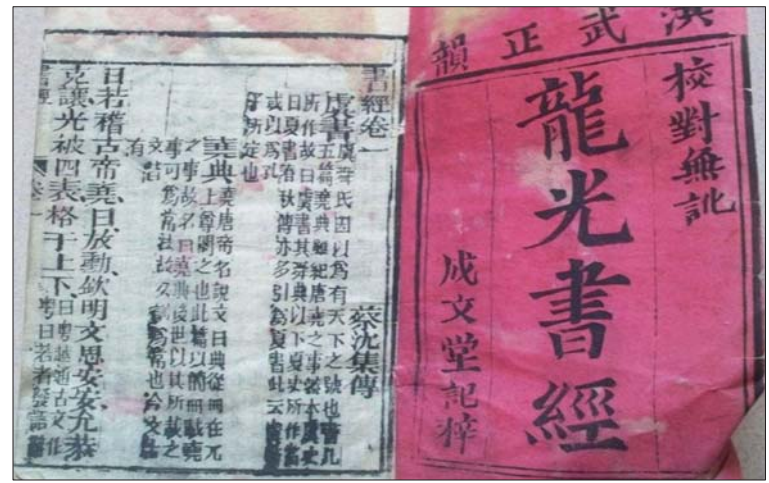 洪武正韻
校對無訛
龍光書經
成文堂記梓
書經卷一
蔡沈集傳
虞書 虞舜氏因以爲有天下之號也書凡
五篇堯典雖紀唐堯之事然本虞史
所作故曰虞書其舜典以下夏史所作當
曰夏書春秋傳亦多引爲夏書此云虞書
或以爲孔
子所定也
堯典 堯唐帝名說文曰典從冊在丌
上尊閣之也此篇以簡冊載堯
之事故名曰堯典後世以其所載之
事可爲常法故又訓爲常也今文古
文皆
有
曰若稽古帝堯曰放勳欽明文思安安允恭
克讓光被四表格于上下 曰粵越通古文作
粵曰若者發語辭
書經 卷一